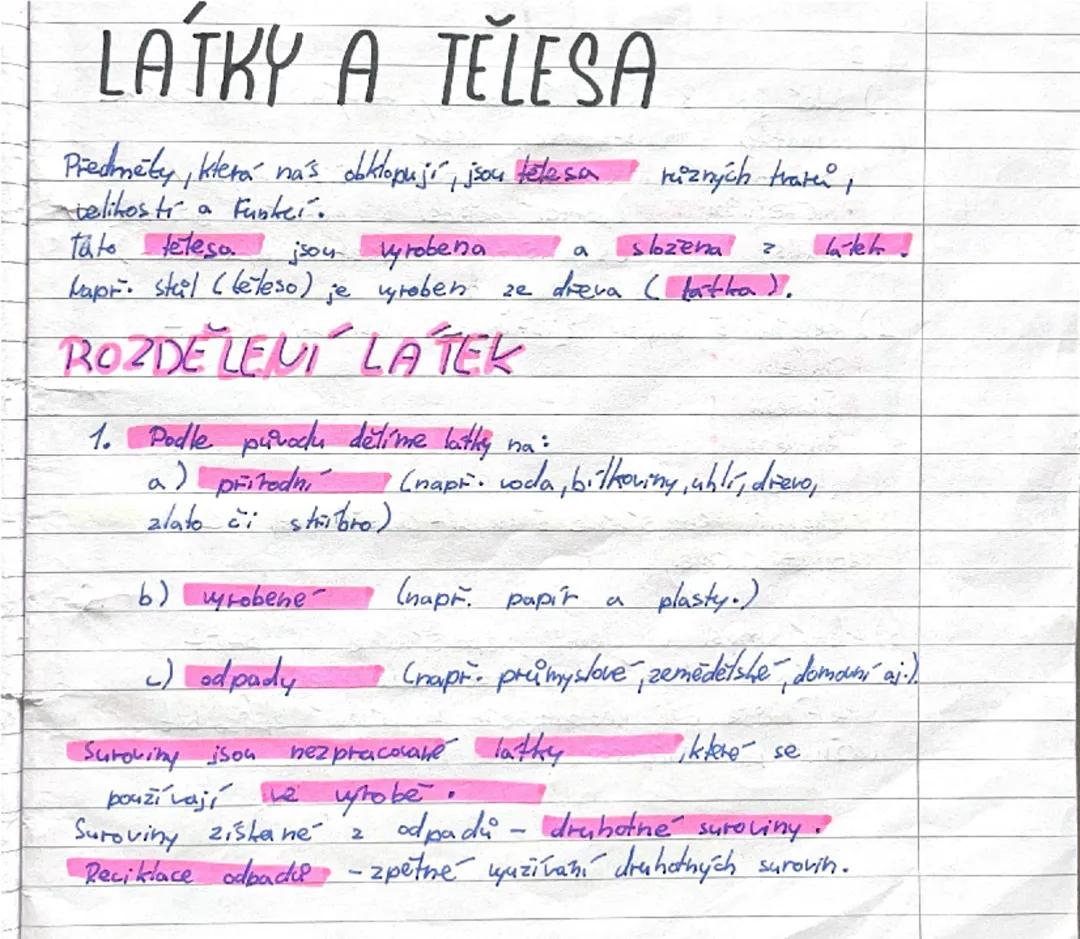 LÁTKY A TĚLESA
Předměty, která nás obklopují, jsou tělesa různých tvarů,
velikostí a funkcí.
Tato tělesa jsou vyrobena a složena z látek.
Např. stůl (těleso) je vyroben ze dřeva (látka).
ROZDĚLENÍ LÁTEK
1. Podle původu dělíme látky na:
a) přírodní (např. voda, bílkoviny, uhlí, dřevo,
zlato či stříbro)
b) vyrobené (např. papír a plasty.)
c) odpady (např. průmyslové, zemědělské, domovní aj.).
Suroviny jsou nezpracované látky, které se
používají ve výrobě.
Suroviny získané z odpadů - druhotné suroviny.
Reciklace odpadů - zpětné využívaní druhotných surovin.